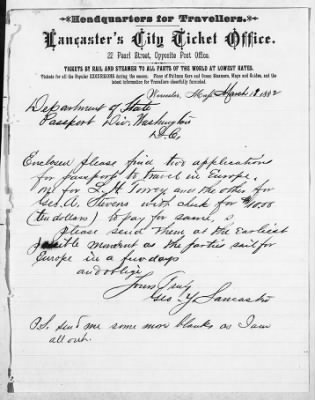 Headquarters for Travellers.
Lancaster's City Ticket Office.
22 Pearl Street, Opposite Post Office.
TICKETS BY RAIL AND STEAMER TO ALL PARTS OF THE WORLD AT LOWEST RATES.
Tickets for all the Popular EXCURSIONS during the season. Plans of Pullman Cars and Ocean Steamers, Maps and Guides, and the
latest information for Travellers cheerfully furnished.
Worcester, Mass. March 18, 1882
Department of State
Passport Div. Washington
D.C.
Enclosed please find two applications
for passport to travel in Europe,
one for L. H. Torrey and the other for
Geo. A. Stevens with check for $10.00
(ten dollars) to pay for same,
please send them at the earliest
possible moment as the parties sail for
Europe in a few days
and oblige
Yours Truly
Geo. Y. Lancaster
P.S. send me some more blanks as I am
all out.